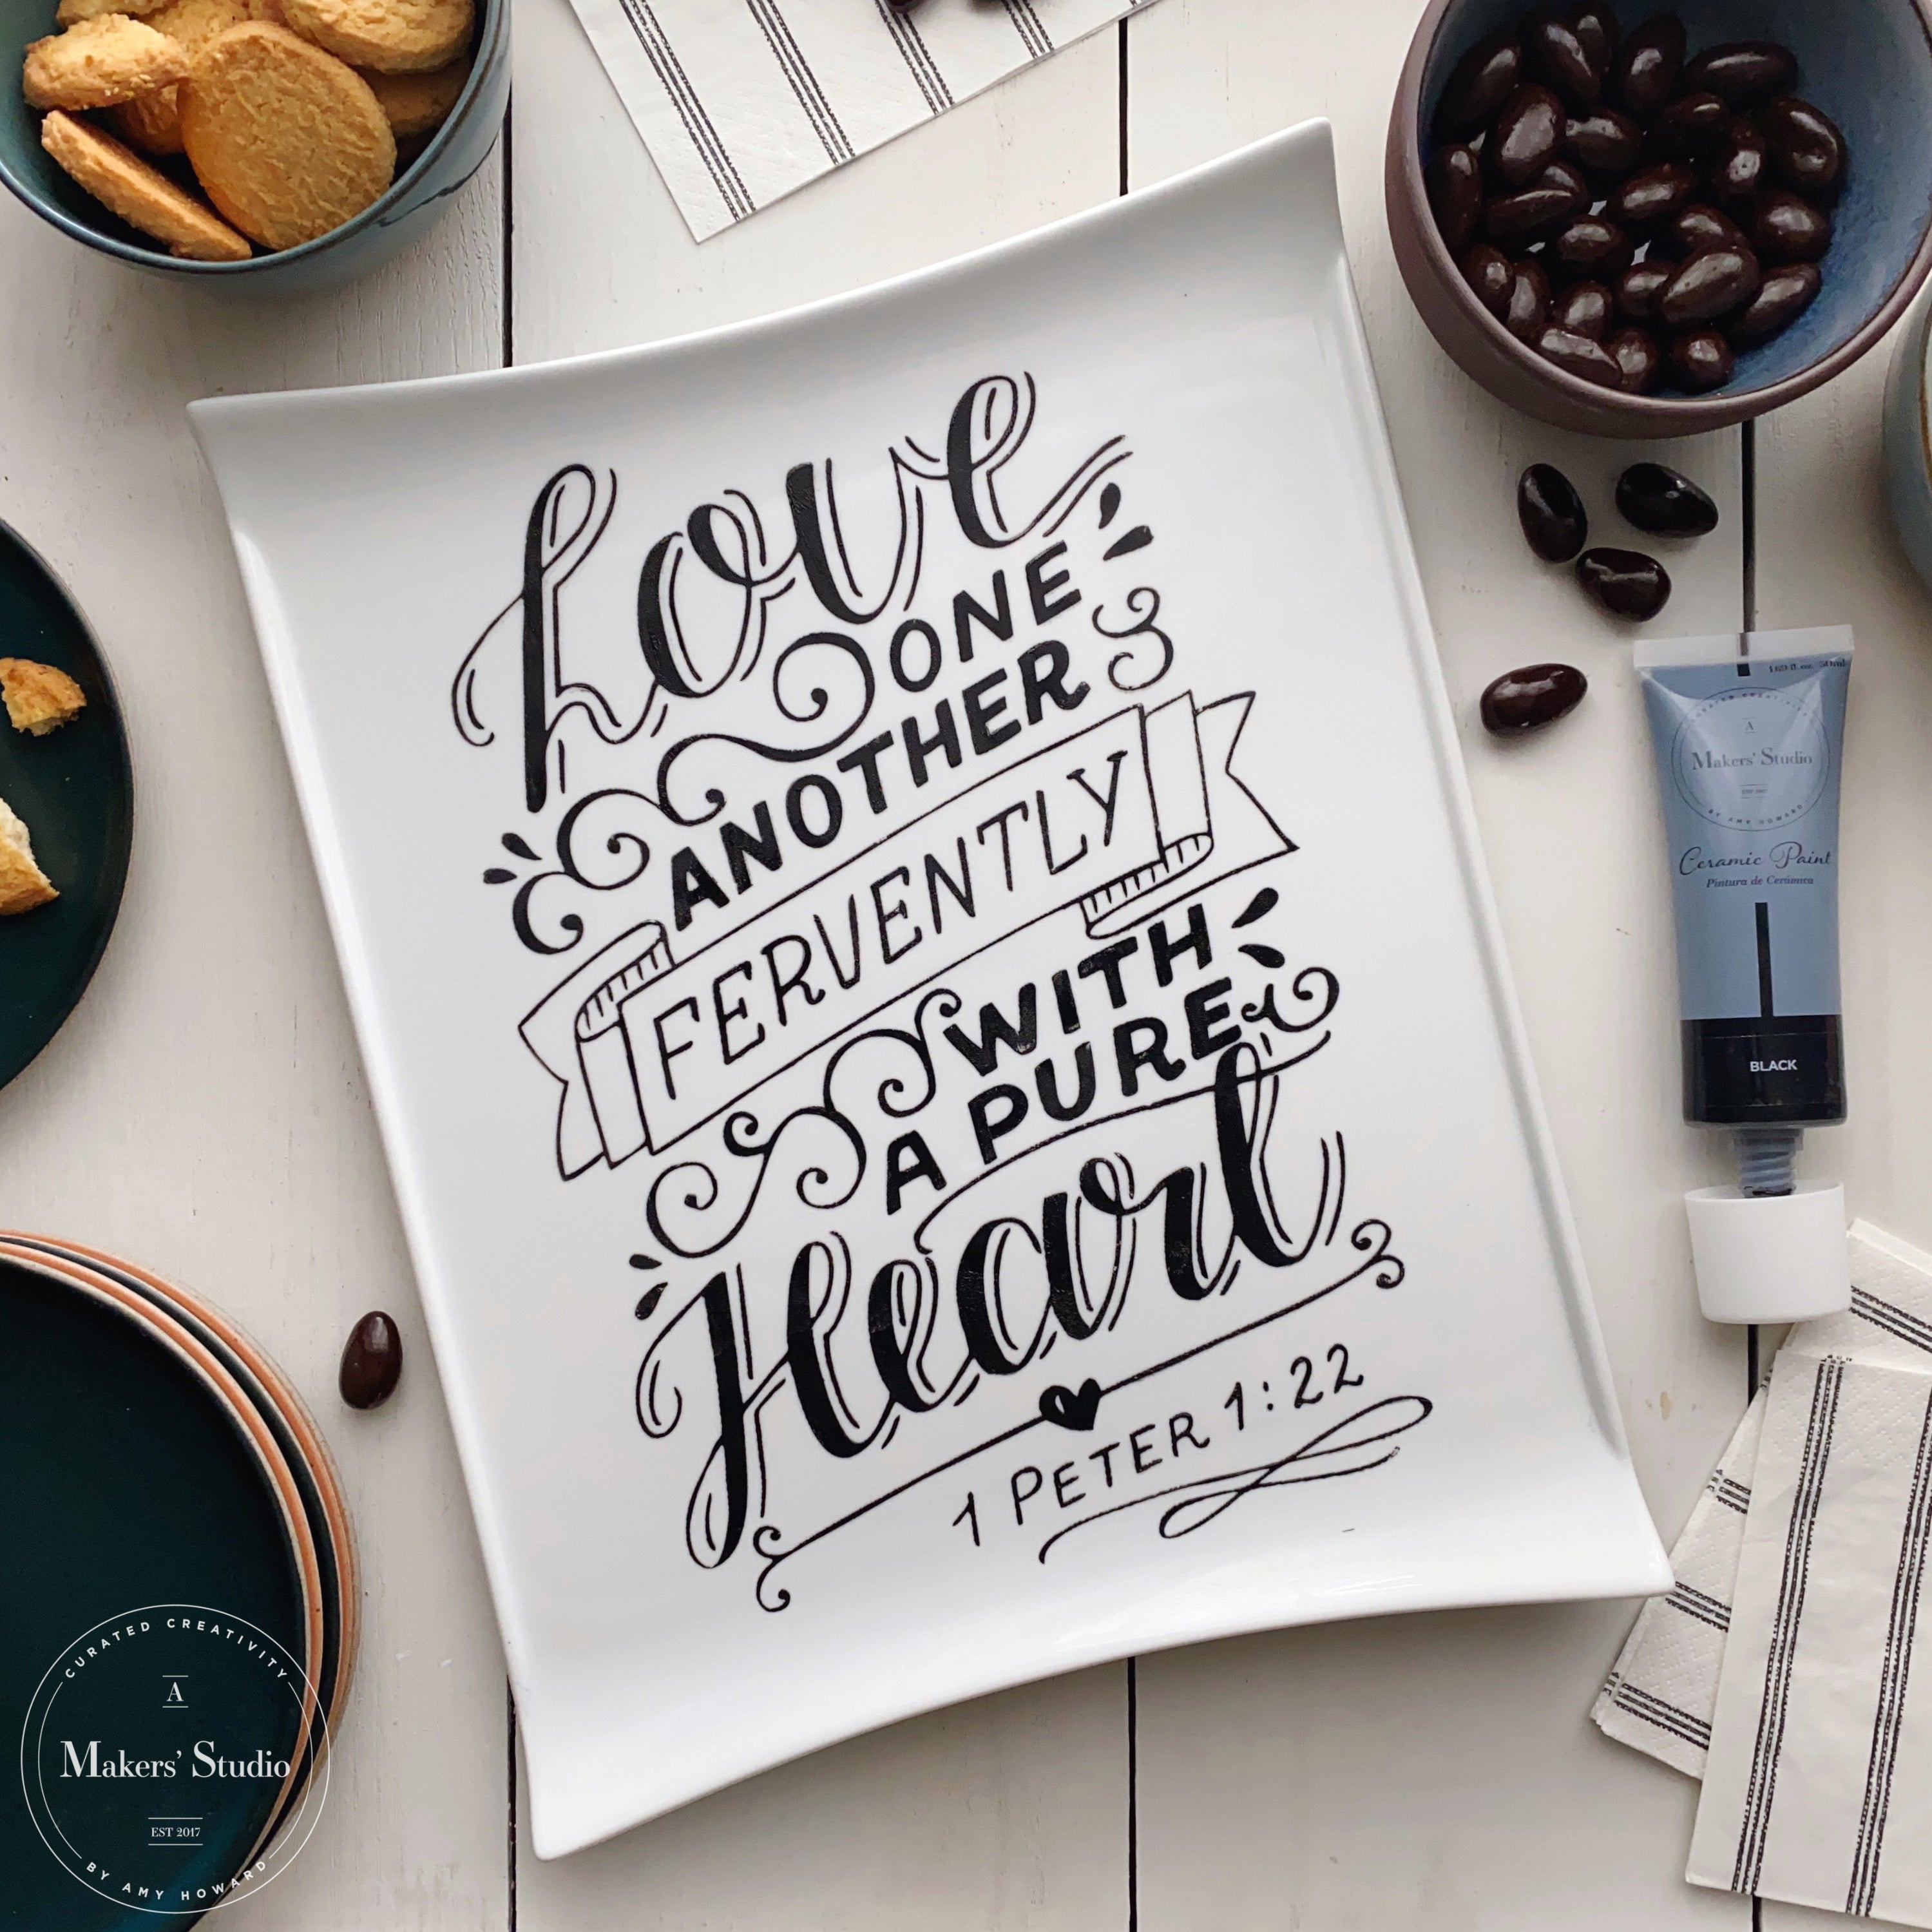 Love
ONE
ANOTHER
FERVENTLY
WITH
A PURE
Heart
1 PETER 1:22
A
Makers' Studio
BY AMY HOWARD
Ceramic Paint
Pintura de Cerámica
BLACK
CURATED CREATIVITY
A
Makers' Studio
EST 2017
BY AMY HOWARD